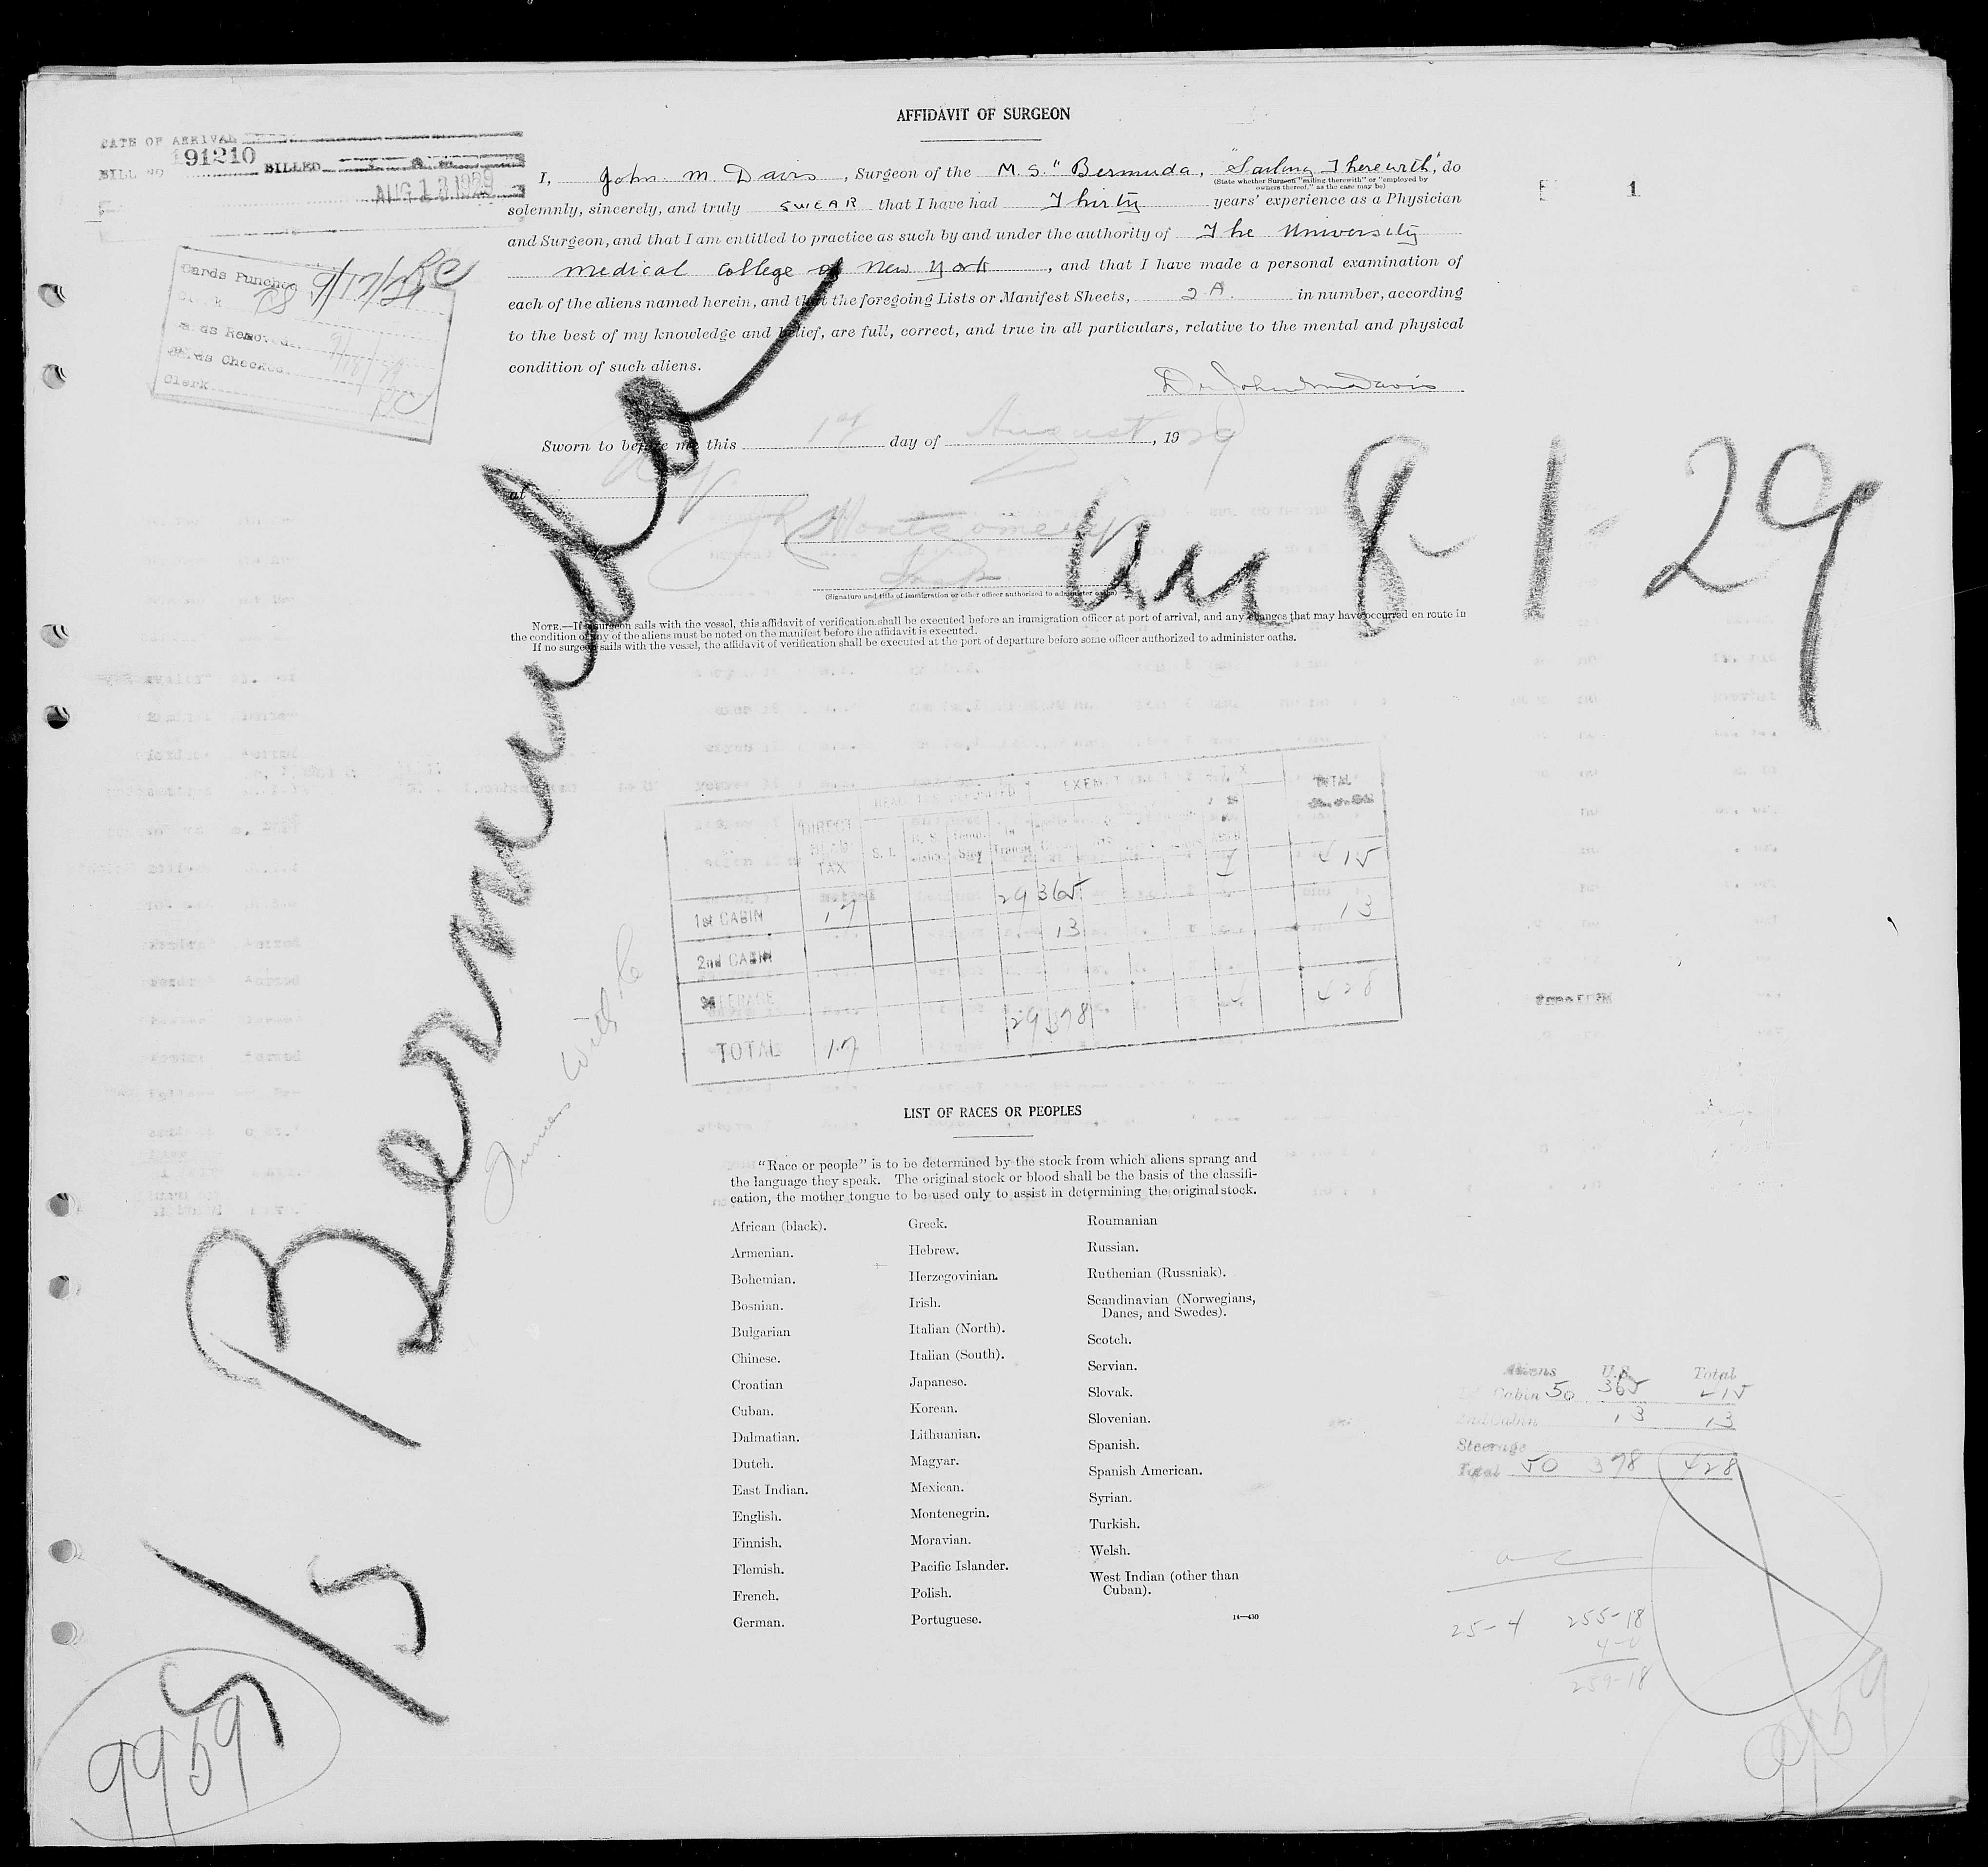 AFFIDAVIT OF SURGEON
DATE OF ARRIVAL
BILL NO 91210 BILLED
AUG 13 1929
I, John M. Davis, Surgeon of the M.S. "Bermuda, "Sailing Therewith", do
(State whether Surgeon "sailing therewith" or "employed by
owners thereof," as the case may be)
solemnly, sincerely, and truly SWEAR that I have had Thirty years' experience as a Physician
and Surgeon, and that I am entitled to practice as such by and under the authority of The University
Medical College of New York, and that I have made a personal examination of
each of the aliens named herein, and that the foregoing Lists or Manifest Sheets, 2 A. in number, according
to the best of my knowledge and belief, are full, correct, and true in all particulars, relative to the mental and physical
condition of such aliens.
1
Dr John M Davis
Cards Punched 9/17/29 RC
Clerk
Cards Removed
Cards Checked
Clerk
Sworn to before me this 1st day of August, 1929
at NY
Montgomery
(Signature and title of immigration or other officer authorized to administer oaths)
8-1-29
NOTE.—If a surgeon sails with the vessel, this affidavit of verification shall be executed before an immigration officer at port of arrival, and any changes that may have occurred en route in
the condition of any of the aliens must be noted on the manifest before the affidavit is executed.
If no surgeon sails with the vessel, the affidavit of verification shall be executed at the port of departure before some officer authorized to administer oaths.
Bermuda
DIRECT HEAD TAX
S. I.
In Transit
TOTAL
1st CABIN 17 29 365 4 415
2nd CABIN 13 13
STEERAGE
TOTAL 17 29 378 4 428
LIST OF RACES OR PEOPLES
"Race or people" is to be determined by the stock from which aliens sprang and
the language they speak. The original stock or blood shall be the basis of the classifi-
cation, the mother tongue to be used only to assist in determining the original stock.
African (black).
Armenian.
Bohemian.
Bosnian.
Bulgarian
Chinese.
Croatian
Cuban.
Dalmatian.
Dutch.
East Indian.
English.
Finnish.
Flemish.
French.
German.
Greek.
Hebrew.
Herzegovinian.
Irish.
Italian (North).
Italian (South).
Japanese.
Korean.
Lithuanian.
Magyar.
Mexican.
Montenegrin.
Moravian.
Pacific Islander.
Polish.
Portuguese.
Roumanian
Russian.
Ruthenian (Russniak).
Scandinavian (Norwegians,
Danes, and Swedes).
Scotch.
Servian.
Slovak.
Slovenian.
Spanish.
Spanish American.
Syrian.
Turkish.
Welsh.
West Indian (other than
Cuban).
14—430
Aliens U.S. Total
1st Cabin 50 365 415
2nd Cabin 13 13
Steerage
Total 50 378 428
25-4 255-18
4-0
259-18
5/5
9959
9959